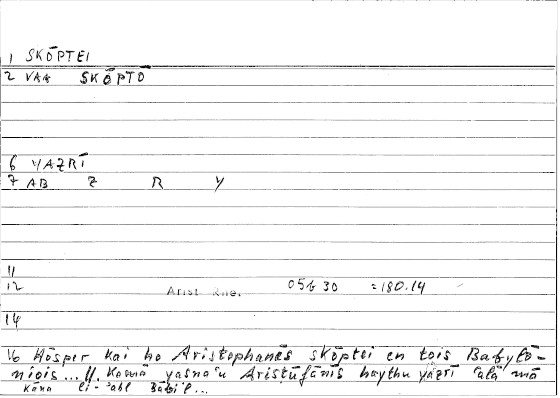 1 SKŌPTEI
2 VAA SKŌPTŌ
6 YAZRĪ
7 AB Z R Y
11
12 Arist Rhe. 05b 30 =180.14
14
16 Hōsper kai ho Aristophanēs skōptei en tois Babylō-
niois... // Kamā yasna'u Aristūfānīs haythu yazrī 'alā mā
kāna li-'ahl Bābil...